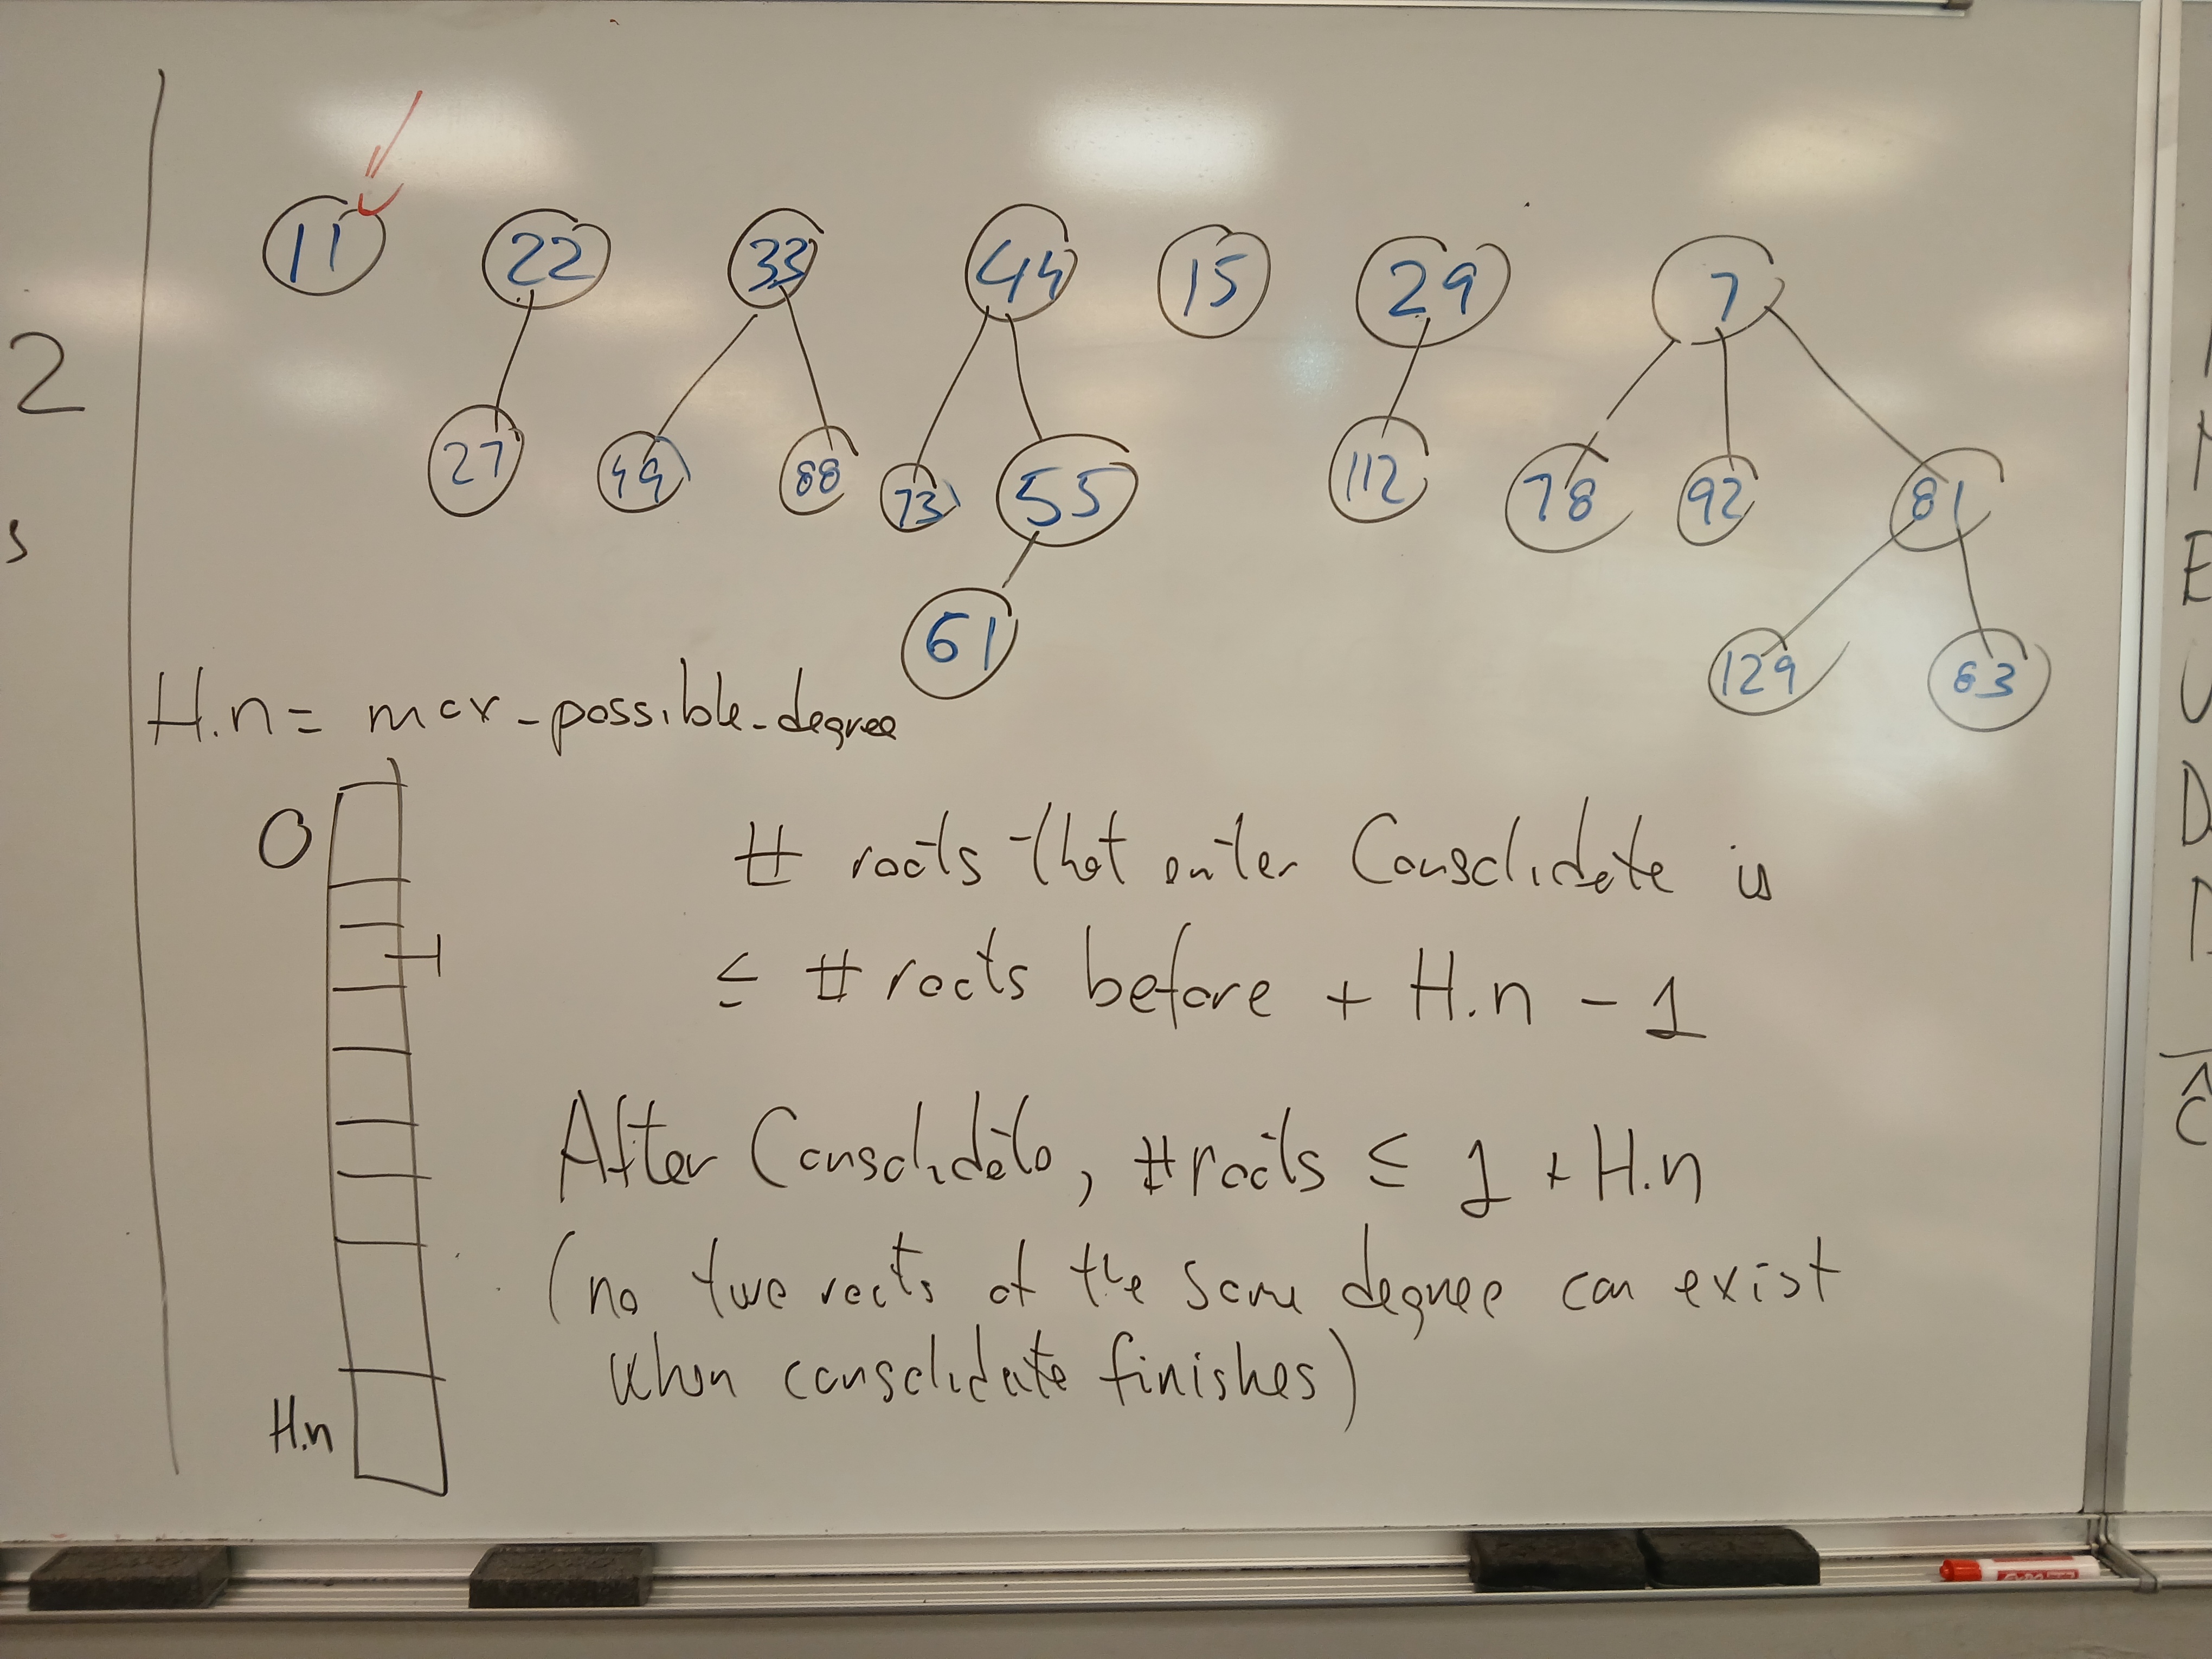 11 22 33 44 15 29 7
2
27 49 88 73 55 112 78 92 81
s
61 129 63
H.n = max_possible_degree
0
# roots that enter Consolidate is
≤ # roots before + H.n - 1
After Consolidate, #roots ≤ 1 + H.n
(no two roots of the same degree can exist
when consolidate finishes)
H.n